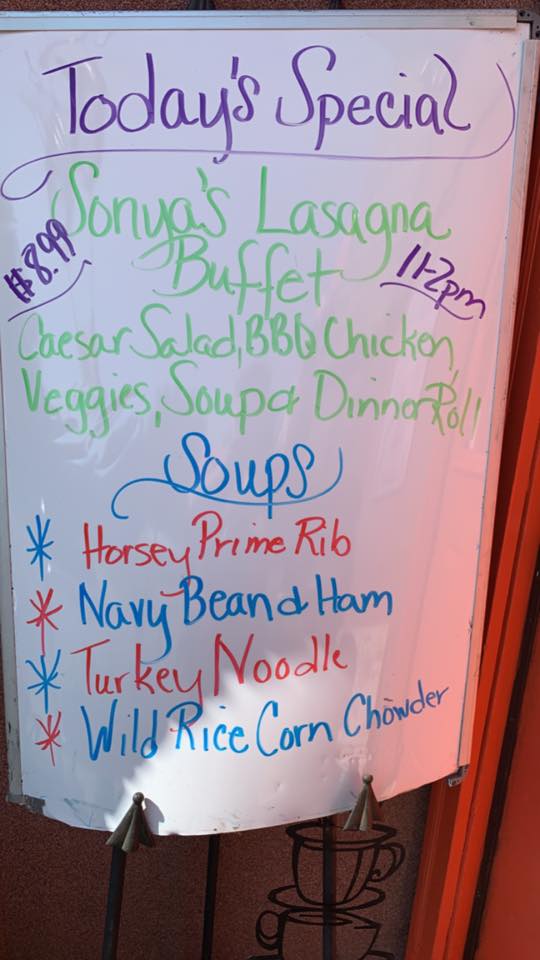 Today's Special
Sonya's Lasagna
Buffet
$8.99
11-2pm
Caesar Salad, BBQ Chicken,
Veggies, Soup & Dinner Roll
Soups
* Horsey Prime Rib
* Navy Bean & Ham
* Turkey Noodle
* Wild Rice Corn Chowder